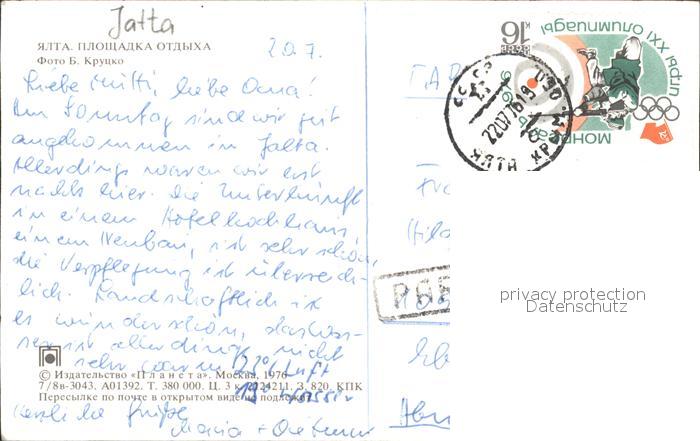 Jalta
ЯЛТА. ПЛОЩАДКА ОТДЫХА
Фото Б. Круцко
20.7.
Liebe Mutti, liebe Oma!
Am Sonntag sind wir gut
angekommen in Jalta.
Allerdings waren wir erst
nachts hier. Die Unterkunft
in einem Hotelhochhaus,
einem Neubau, ist sehr schön,
die Verpflegung ist überreich-
lich. Landschaftlich ist
es wunderschön, das Was-
ser ist allerdings nicht
sehr warm
19° Wasser
© Издательство «Планета». Москва, 1976
7/8в-3043. А01392. Т. 380 000. Ц. 3 к. З. 820. КПК
Пересылке по почте в открытом виде не подлежит
Herzliche Grüße
Maria +
16 К
СССР
ИГРЫ XXI ОЛИМПИАДЫ
МОНРЕАЛЬ
1976
22 07 76 19
ЯЛТА КРЫМ.
privacy protection
Datenschutz